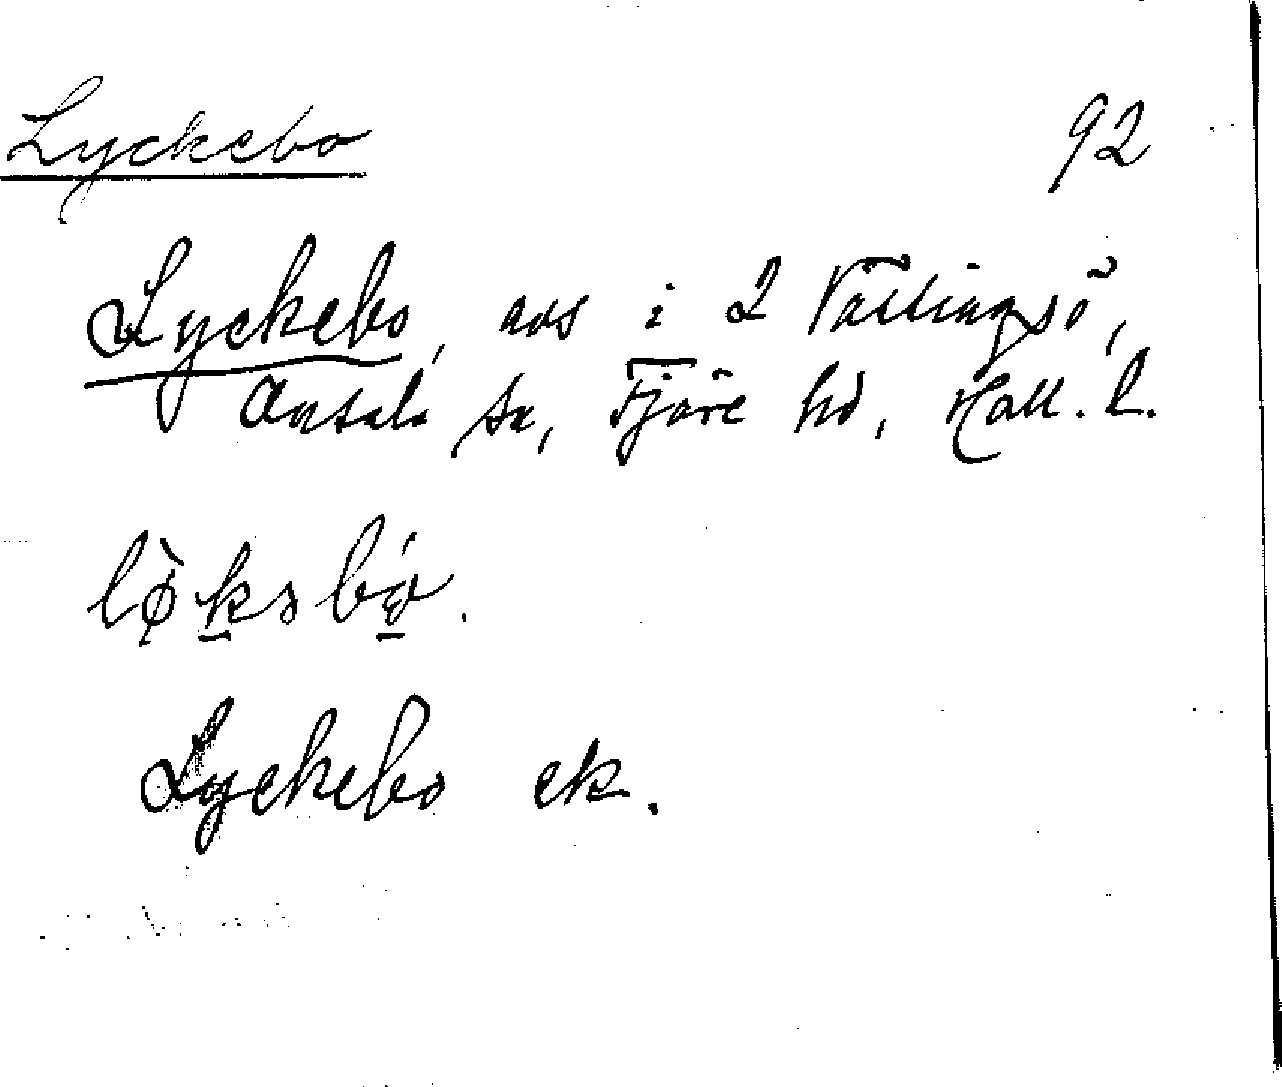 Lyckebo
92
Lyckebo, avs i 2 Vällingsö,
Onsala sn, Fjäre hd, Hall. l.
Lyckebo ek.